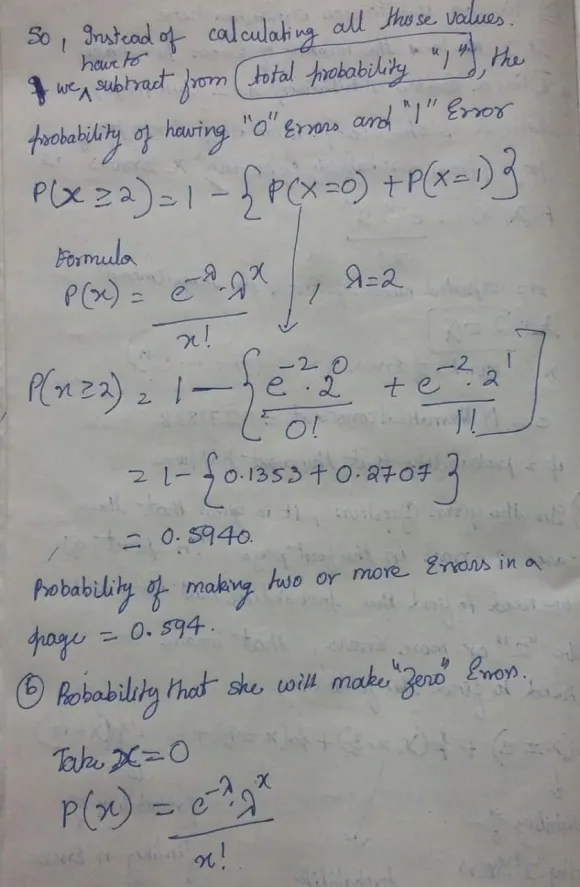 So, Instead of calculating all those values.
have to
we ^ subtract from total probability "1", the
probability of having "0" Errors and "1" Error
P(x ≥ 2) = 1 - { P(X=0) + P(X=1) }
Formula
P(x) = e^-λ · λ^x / x! , λ=2
P(x ≥ 2) = 1 - { e^-2 · 2^0 / 0! + e^-2 · 2^1 / 1! ]
= 1 - { 0.1353 + 0.2707 }
= 0.5940.
Probability of making two or more Errors in a
page = 0.594.
(b) Probability that she will make "Zero" Error.
Take x = 0
P(x) = e^-λ · λ^x / x!